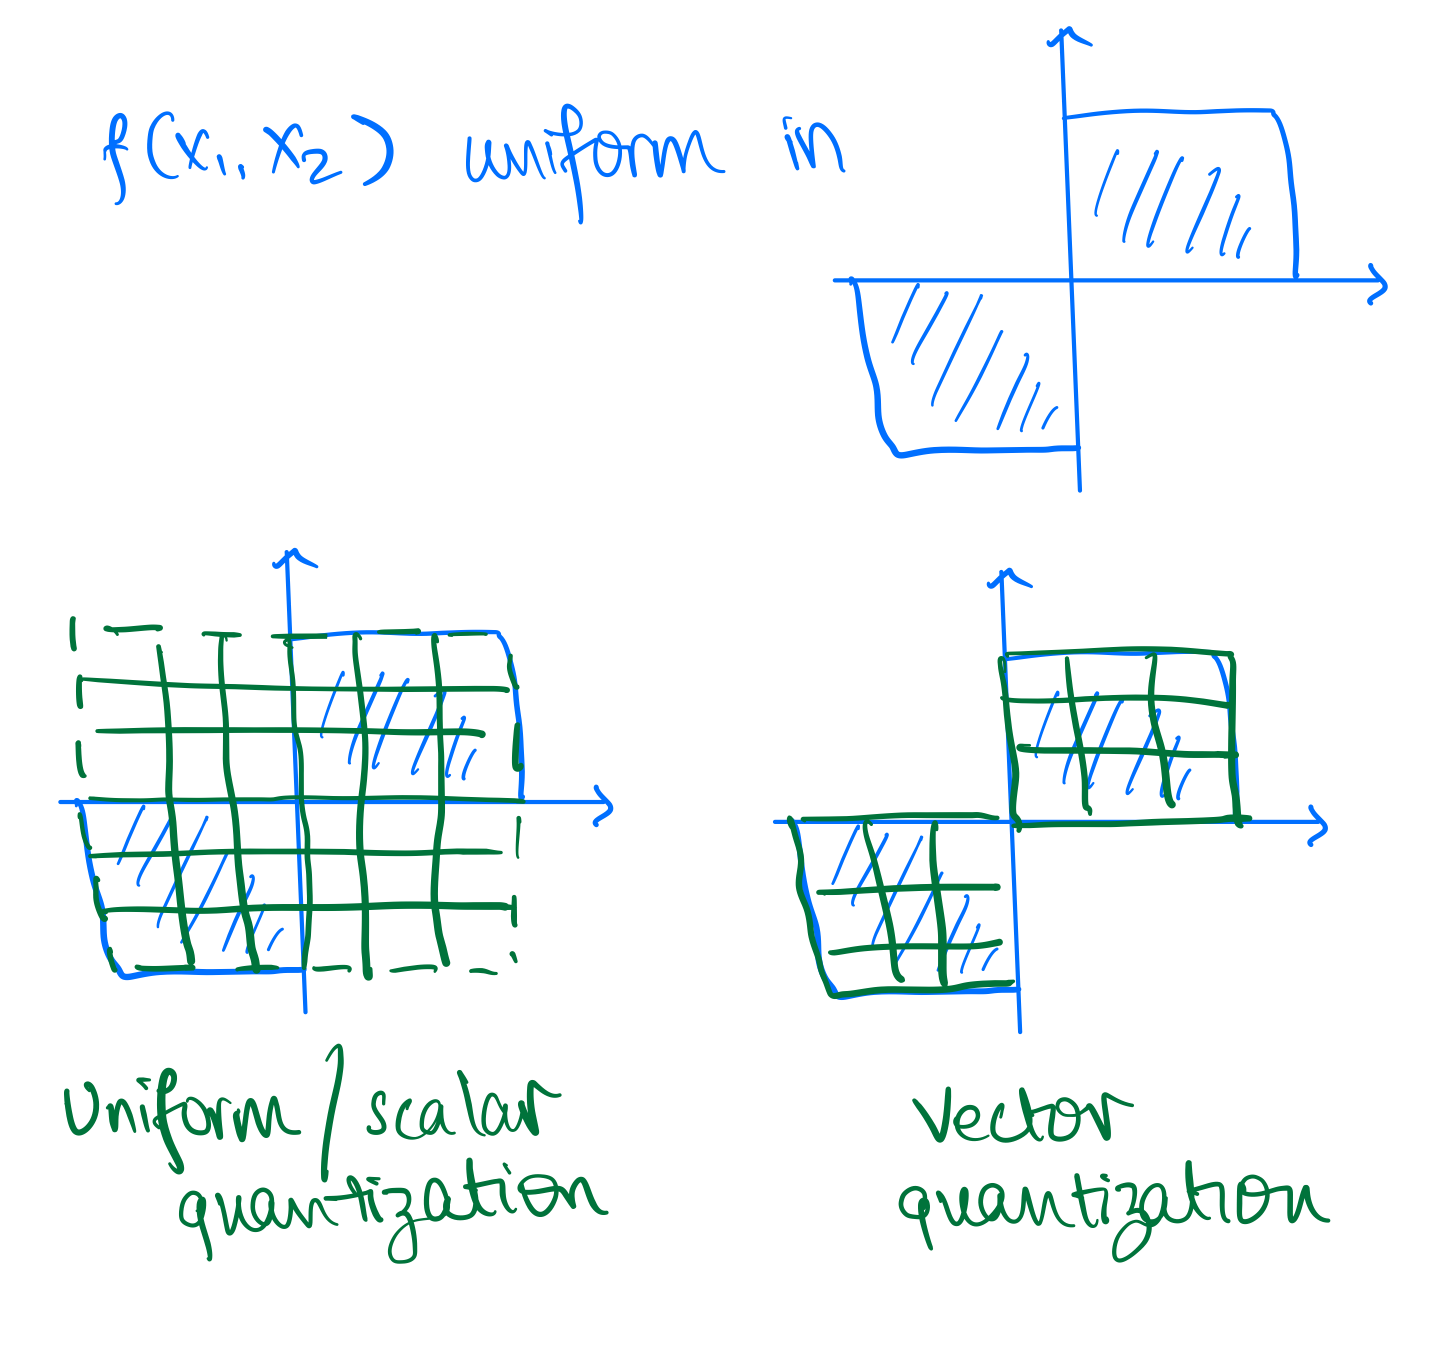 f(x₁, x₂) uniform in
Uniform / scalar
quantization
Vector
quantization